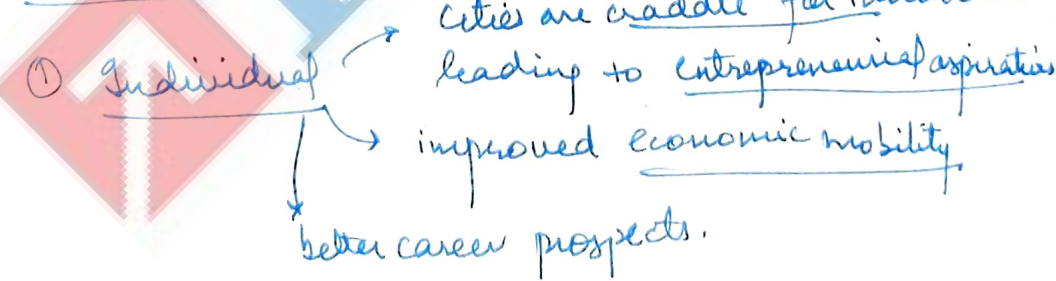 cities are craddle for
① Individual
leading to entrepreneurial aspirations
improved economic mobility
better career prospects.